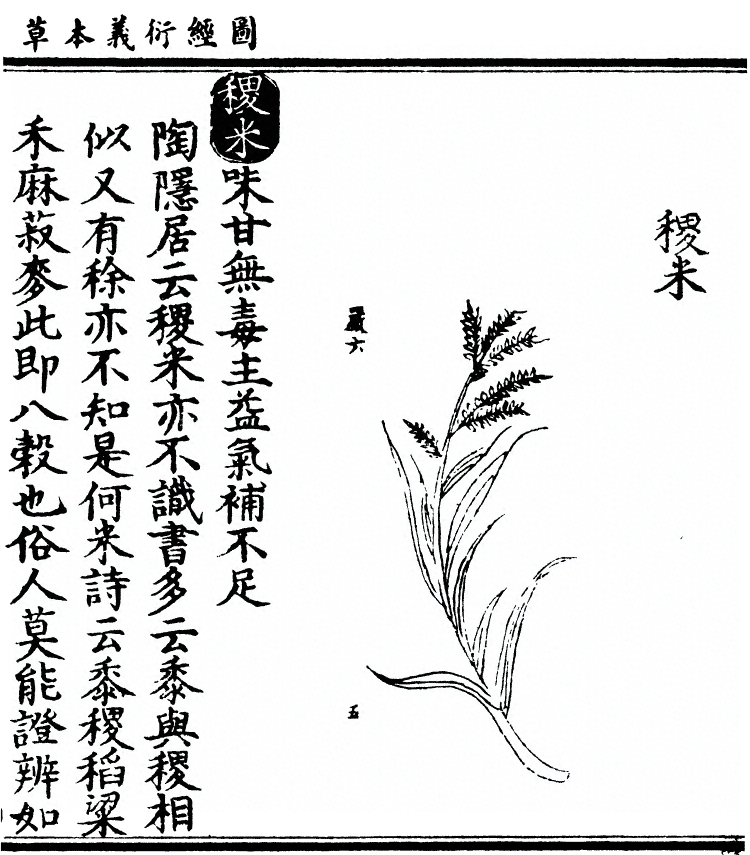 圖經衍義本草
稷米
嚴六
五
稷米味甘無毒主益氣補不足
陶隱居云稷米亦不識書多云黍與稷相
似又有稌亦不知是何米詩云黍稷稻粱
禾麻菽麥此即八穀也俗人莫能證辨如